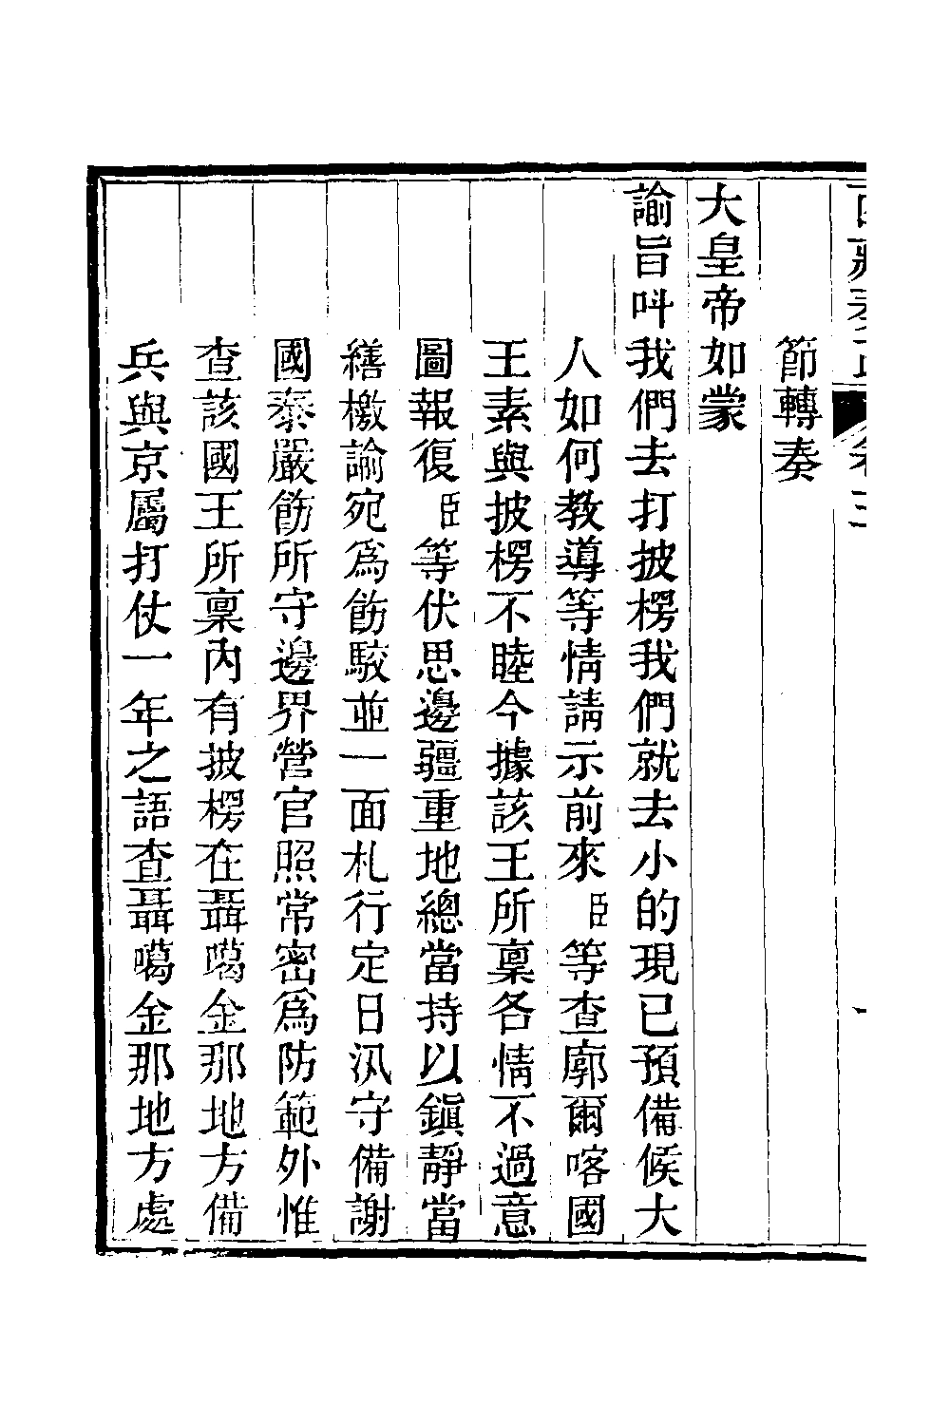 節轉奏
大皇帝如蒙
諭旨呌我們去打披楞我們就去小的現已預備候大
人如何教導等情請示前來臣等查廓爾喀國
王素與披楞不睦今據該王所稟各情不過意
圖報復臣等伏思邊疆重地總當持以鎮靜當
繕檄諭宛為飭駮並一面札行定日汛守備謝
國泰嚴飭所守邊界營官照常密為防範外惟
查該國王所稟內有披楞在聶噶金那地方備
兵與京屬打仗一年之語查聶噶金那地方處